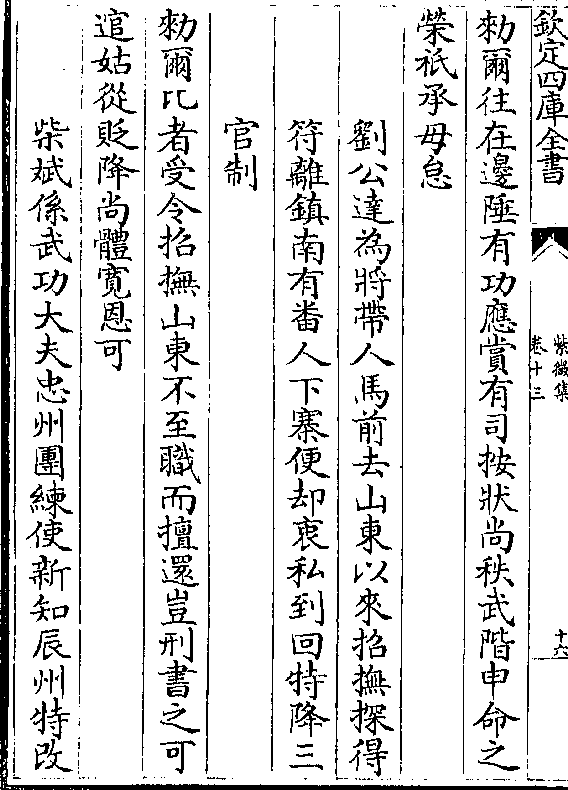 欽定四庫全書
紫微集
卷十三
十六
勅爾往在邊陲有功應賞有司按狀尚秩武階申命之
榮祇承毋怠
劉公達為將帶人馬前去山東以來招撫探得
符離鎮南有番人下寨便却衷私到回特降三
官制
勅爾比者受令招撫山東不至職而擅還豈刑書之可
逭姑從貶降尚體寛恩可
柴斌係武功大夫忠州團練使新知辰州特改